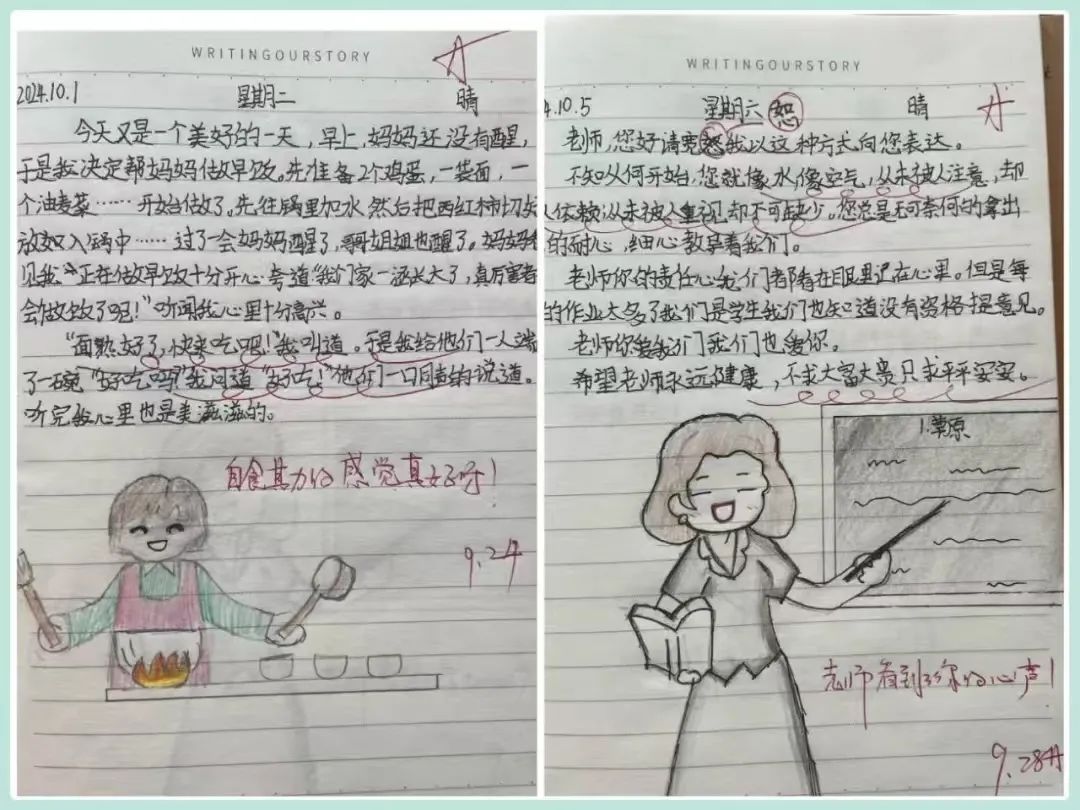 WRITINGOURSTORY
2024.10.1 星期二 晴
今天又是一个美好的一天，早上，妈妈还没有醒，
于是我决定帮妈妈做早饭。先准备2个鸡蛋，一袋面，一
个油麦菜……开始做了。先往锅里加水然后把西红柿切好
放如入锅中……过了一会妈妈醒了，哥姐姐也醒了。妈妈
见我正在做早饭十分开心夸道“我们家一涵长大了，真厉害都
会做饭了呢！”听闻我心里十分高兴。
“面熟好了，快来吃吧！”我叫道。于是我给他们一人端
了一碗“好吃吗”我问道“好吃！”他们一口同声的说道。
听完我心里也是美滋滋的。
自食其力的感觉真好呀！
9.24
1.草原
WRITINGOURSTORY
4.10.5 星期六 恕 晴
老师，您好请宽恕我以这种方式向您表达。
不知从何开始，您就像水，像空气，从未被人注意，却
人依赖；从未被人重视却不可缺少。您总是无可奈何的拿出
的耐心，细心教导着我们。
老师你的责任心我们都看在眼里记在心里。但是每
的作业太多了我们是学生我们也知道没有资格提意见。
老师你爱我们我们也爱你。
希望老师永远健康，不求大富大贵只求平平安安。
老师看到了你的心声！
9.28